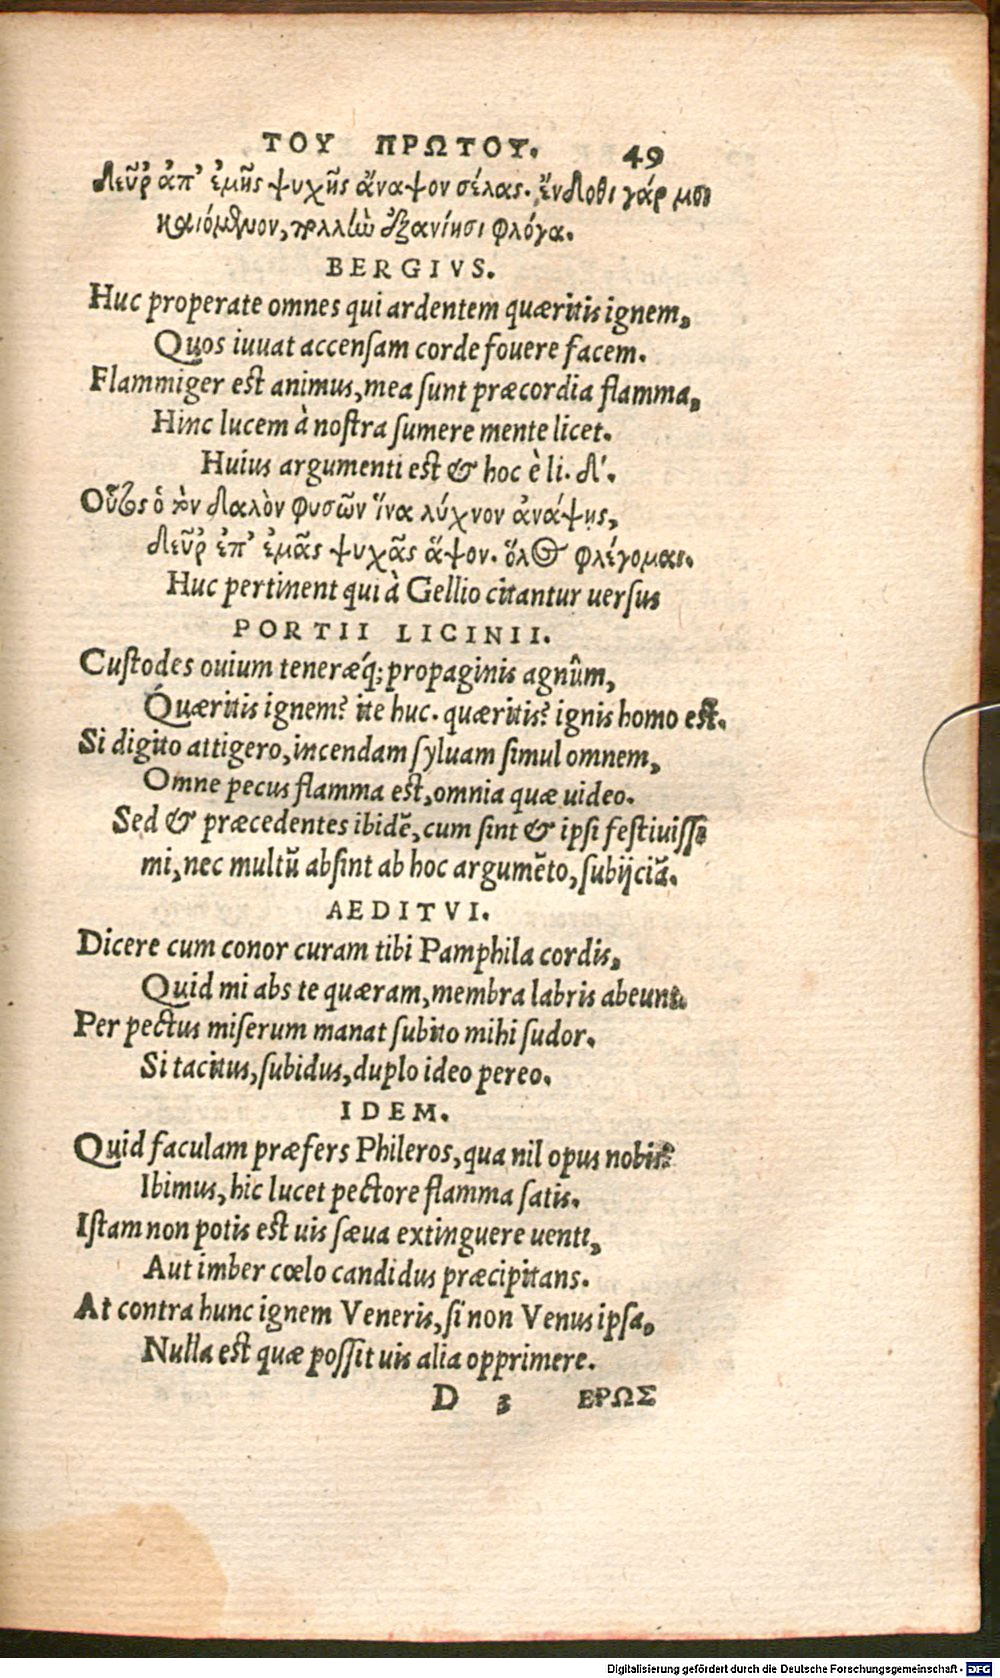 ΤΟΥ ΠΡΩΤΟΥ. 49
δεῦρ' ἀπ' ἐμῆς ψυχῆς ἄναψον σέλας. ἔνδοθι γάρ μου
καιόμενον, πολλὴν ἐξανίησι φλόγα.
BERGIVS.
Huc properate omnes qui ardentem quæritis ignem,
Quos iuuat accensam corde fouere facem.
Flammiger est animus, mea sunt præcordia flamma,
Hinc lucem à nostra sumere mente licet.
Huius argumenti est & hoc è li. δ'.
Οὗτος ὁ τὸν δαλὸν φυσῶν ἵνα λύχνον ἀνάψῃς,
δεῦρ' ἐπ' ἐμᾶς ψυχᾶς ἅψον. ὅλος φλέγομαι.
Huc pertinent qui à Gellio citantur uersus
PORTII LICINII.
Custodes ouium teneræq́; propaginis agnûm,
Quæritis ignem? ite huc. quæritis? ignis homo est.
Si digito attigero, incendam syluam simul omnem,
Omne pecus flamma est, omnia quæ uideo.
Sed & præcedentes ibidē, cum sint & ipsi festiuissi
mi, nec multū absint ab hoc argumēto, subijciā.
AEDITVI.
Dicere cum conor curam tibi Pamphila cordis,
Quid mi abs te quæram, membra labris abeunt.
Per pectus miserum manat subito mihi sudor.
Si tacitus, subidus, duplo ideo pereo.
IDEM.
Quid faculam præfers Phileros, qua nil opus nobis?
Ibimus, hic lucet pectore flamma satis.
Istam non potis est uis sæua extinguere uenti,
Aut imber cœlo candidus præcipitans.
At contra hunc ignem Veneris, si non Venus ipsa,
Nulla est quæ possit uis alia opprimere.
D 3 ΕΡΩΣ
Digitalisierung gefördert durch die Deutsche Forschungsgemeinschaft - DFG